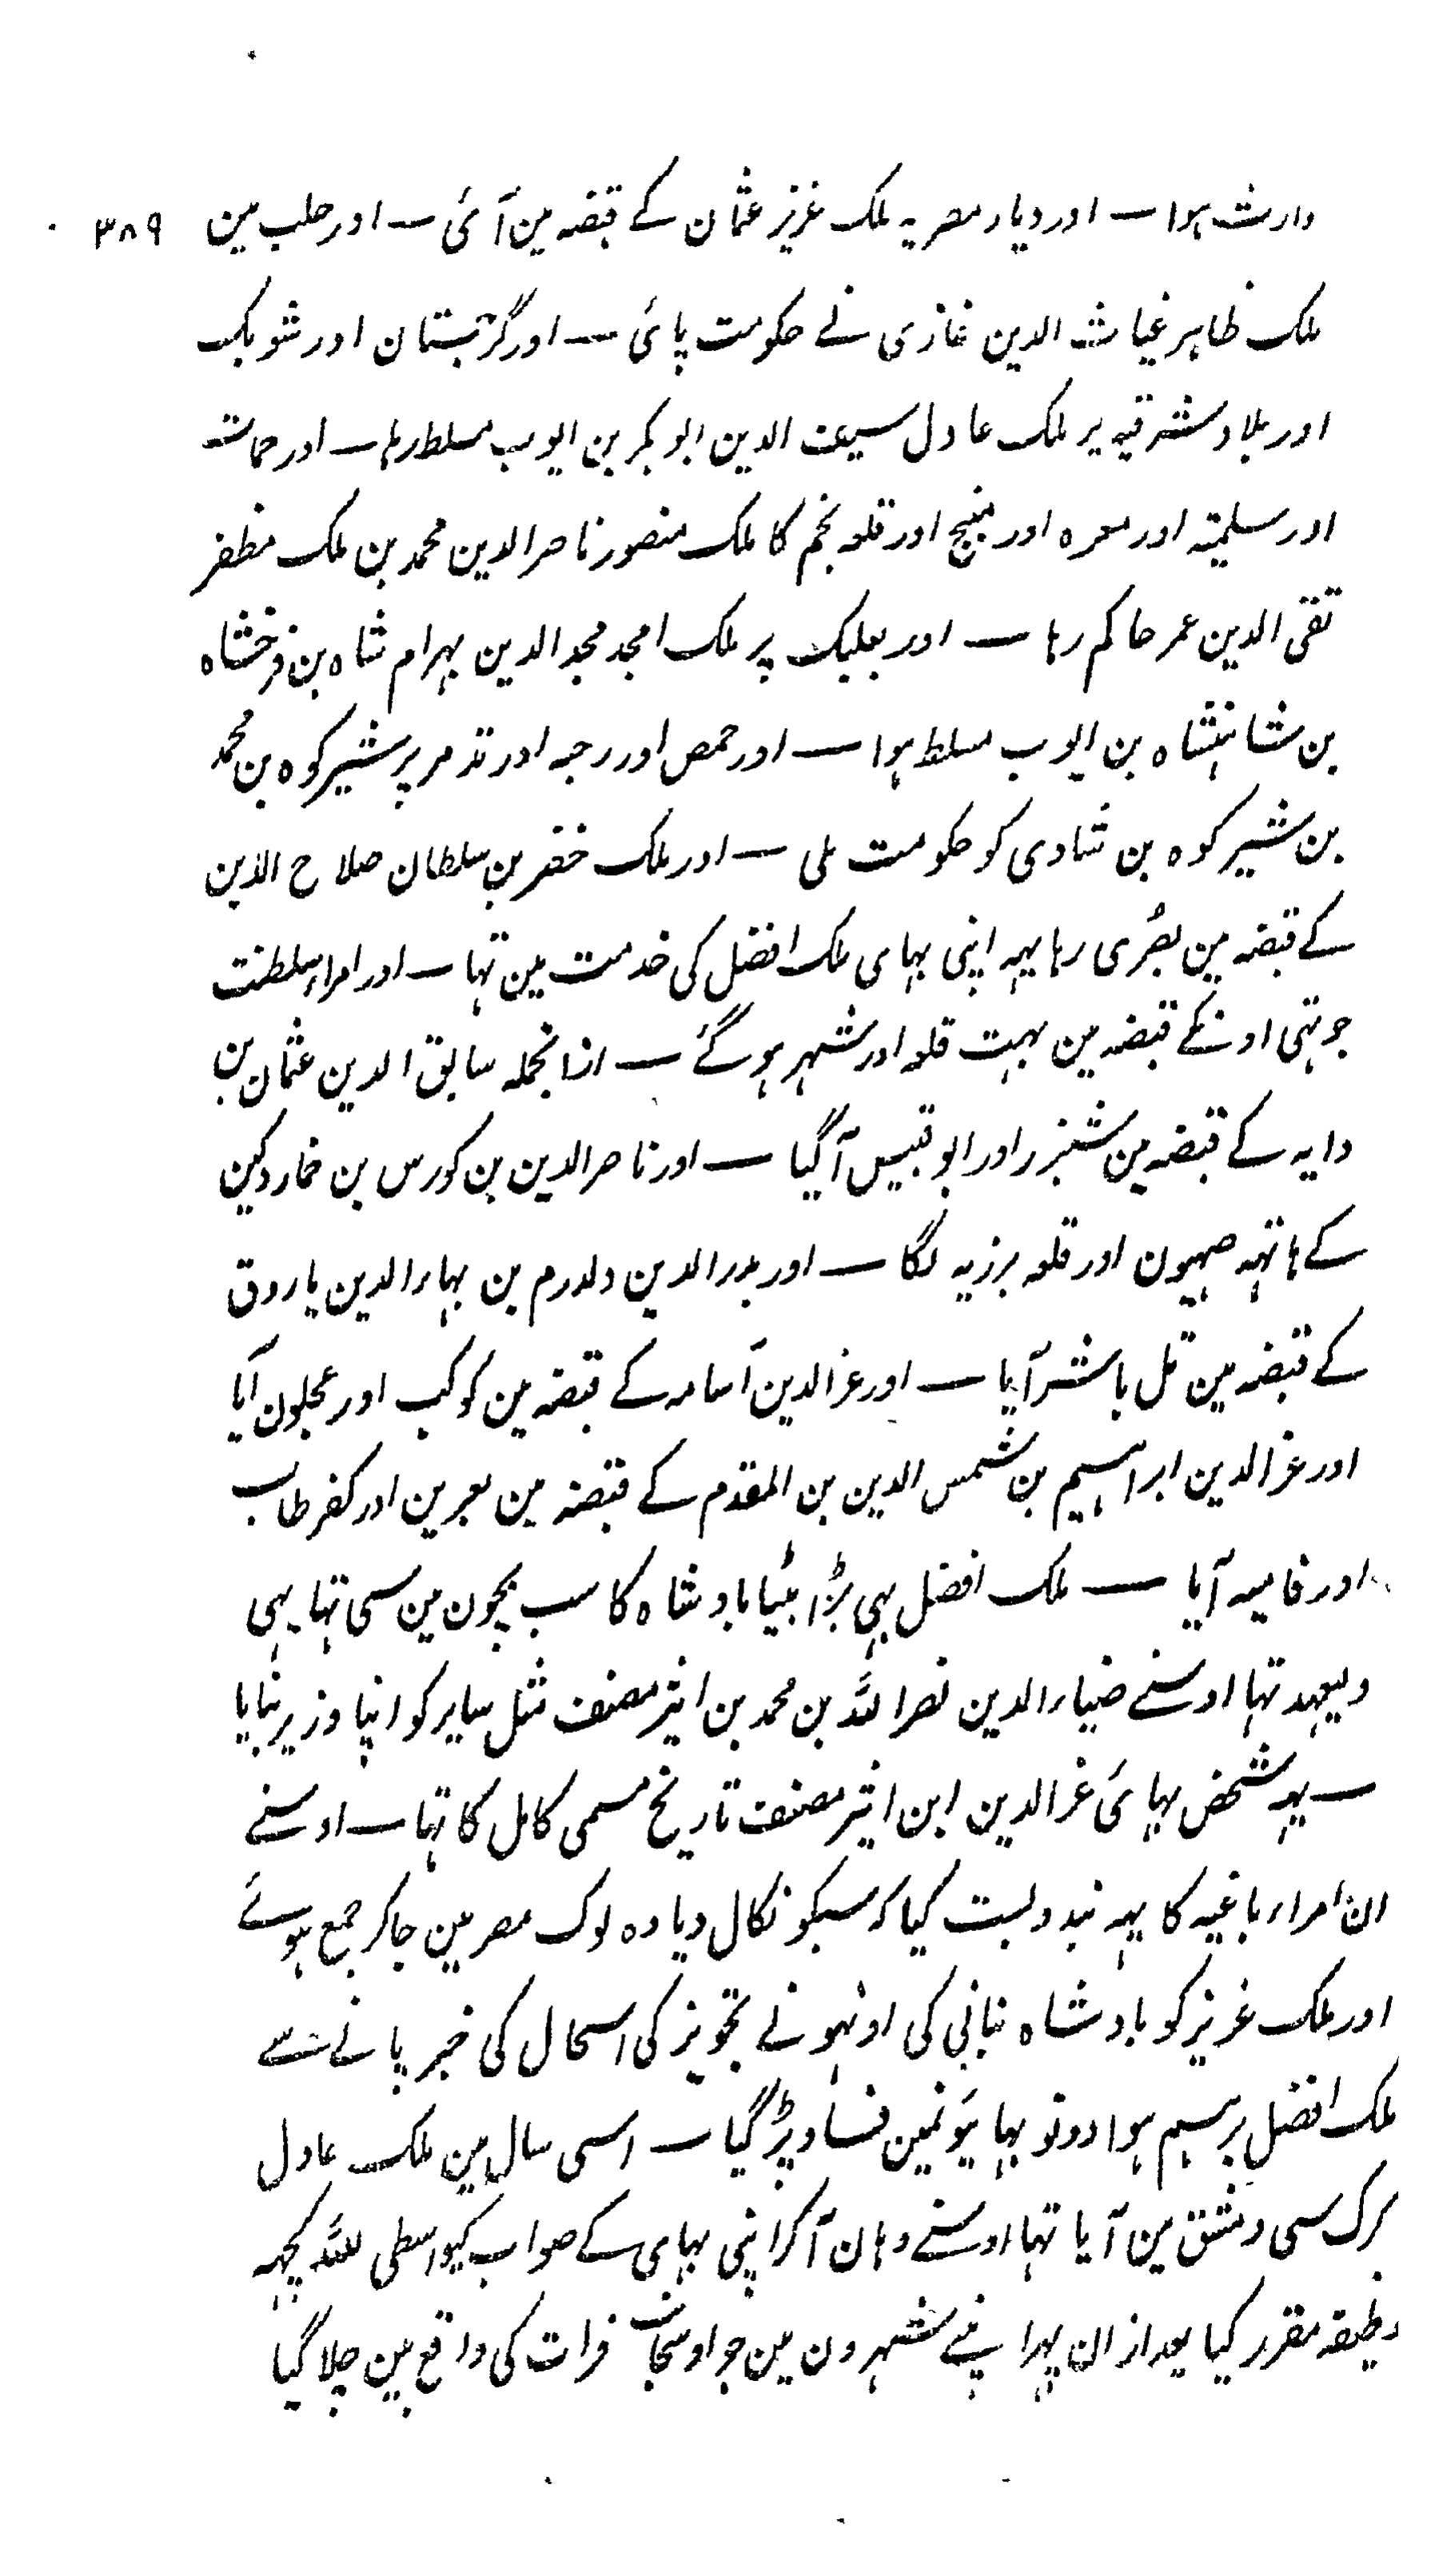 وارث ہوا — اور دیار مصریہ ملک عزیز عثمان کے قبضہ مین آئی — اور حلب مین ۳۸۹
ملک ظاہر غیاث الدین غازی نے حکومت پائی — اور گرجستان اور شوبک
اور بلاد شرقیہ پر ملک عادل سیف الدین ابوبکر بن ایوب مسلط رہا — اور حمات
اور سلمیّہ اور معرہ اور منبج اور قلعہ نجم کا ملک منصور ناصر الدین محمد بن ملک مظفر
تقی الدین عمر حاکم رہا — اور بعلبک پر ملک امجد مجد الدین بہرام شاہ بن فرخشاہ
بن شاہنشاہ بن ایوب مسلط ہوا — اور حمص اور رحبہ اور تدمر پر شیرکوہ بن محمد
بن شیرکوہ بن شادی کو حکومت ملی — اور ملک خضر بن سلطان صلاح الدین
کے قبضہ مین بصری رہا یہہ اپنی بہای ملک افضل کی خدمت مین تہا — اور امراء سلطنت
جو تہی اونکے قبضہ مین بہت قلعہ اور شہر ہو گئے — ازانجملہ سابق الدین عثمان بن
دایہ کے قبضہ مین شیزر اور ابو قبیس آگیا — اور ناصر الدین بن کورس بن خماردکین
کے ہاتہہ صہیون اور قلعہ برزیہ لگا — اور بدر الدین دلدرم بن بہاء الدین یاروق
کے قبضہ مین تل باشر آیا — اور عز الدین آسامہ کے قبضہ مین کوکب اور عجلون آیا
اور عز الدین ابراہیم بن شمس الدین بن المقدم کے قبضہ مین بعرین اور کفر طاب
اور فامیہ آیا — ملک افضل یہی بڑا بیٹا بادشاہ کا سب بچون مین سی تہا یہی
ولیعہد تہا اوسنے ضیاء الدین نصر اللہ بن محمد بن اثیر مصنف مثل سایر کو اپنا وزیر بنایا
— یہہ شخص بہائی عز الدین ابن اثیر مصنف تاریخ مسمی کامل کا تہا — اوسنے
ان امراء باغیہ کا یہہ بندوبست کیا کہ سبکو نکال دیا وہ لوک مصر مین جا کر جمع ہوئے
اور ملک عزیز کو بادشاہ بنانی کی اونہو نے تجویز کی اسحال کی خبر پانے سے
ملک افضل برہم ہوا دونو بہائیونمین فساد پڑ گیا — اسی سال مین ملک عادل
کرک سی دمشق مین آیا تہا اوسنے وہان آکر اپنی بہای کے صواب کیواسطی للہ کچہہ
وظیفہ مقرر کیا بعد ازان پہر اپنے شہرون مین جو اوسجانب فرات کی واقع ہین چلا گیا